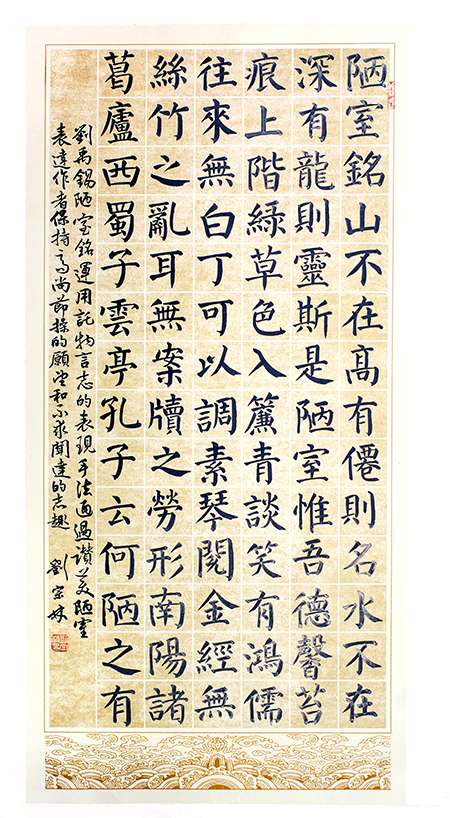 陋室銘山不在高有僊則名水不在
深有龍則靈斯是陋室惟吾德馨苔
痕上階綠草色入簾青談笑有鴻儒
往來無白丁可以調素琴閱金經無
絲竹之亂耳無案牘之勞形南陽諸
葛廬西蜀子雲亭孔子云何陋之有
劉禹錫陋室銘運用託物言志的表現手法通過讚美陋室
表達作者保持高尚節操的願望和不求聞達的志趣
劉宗